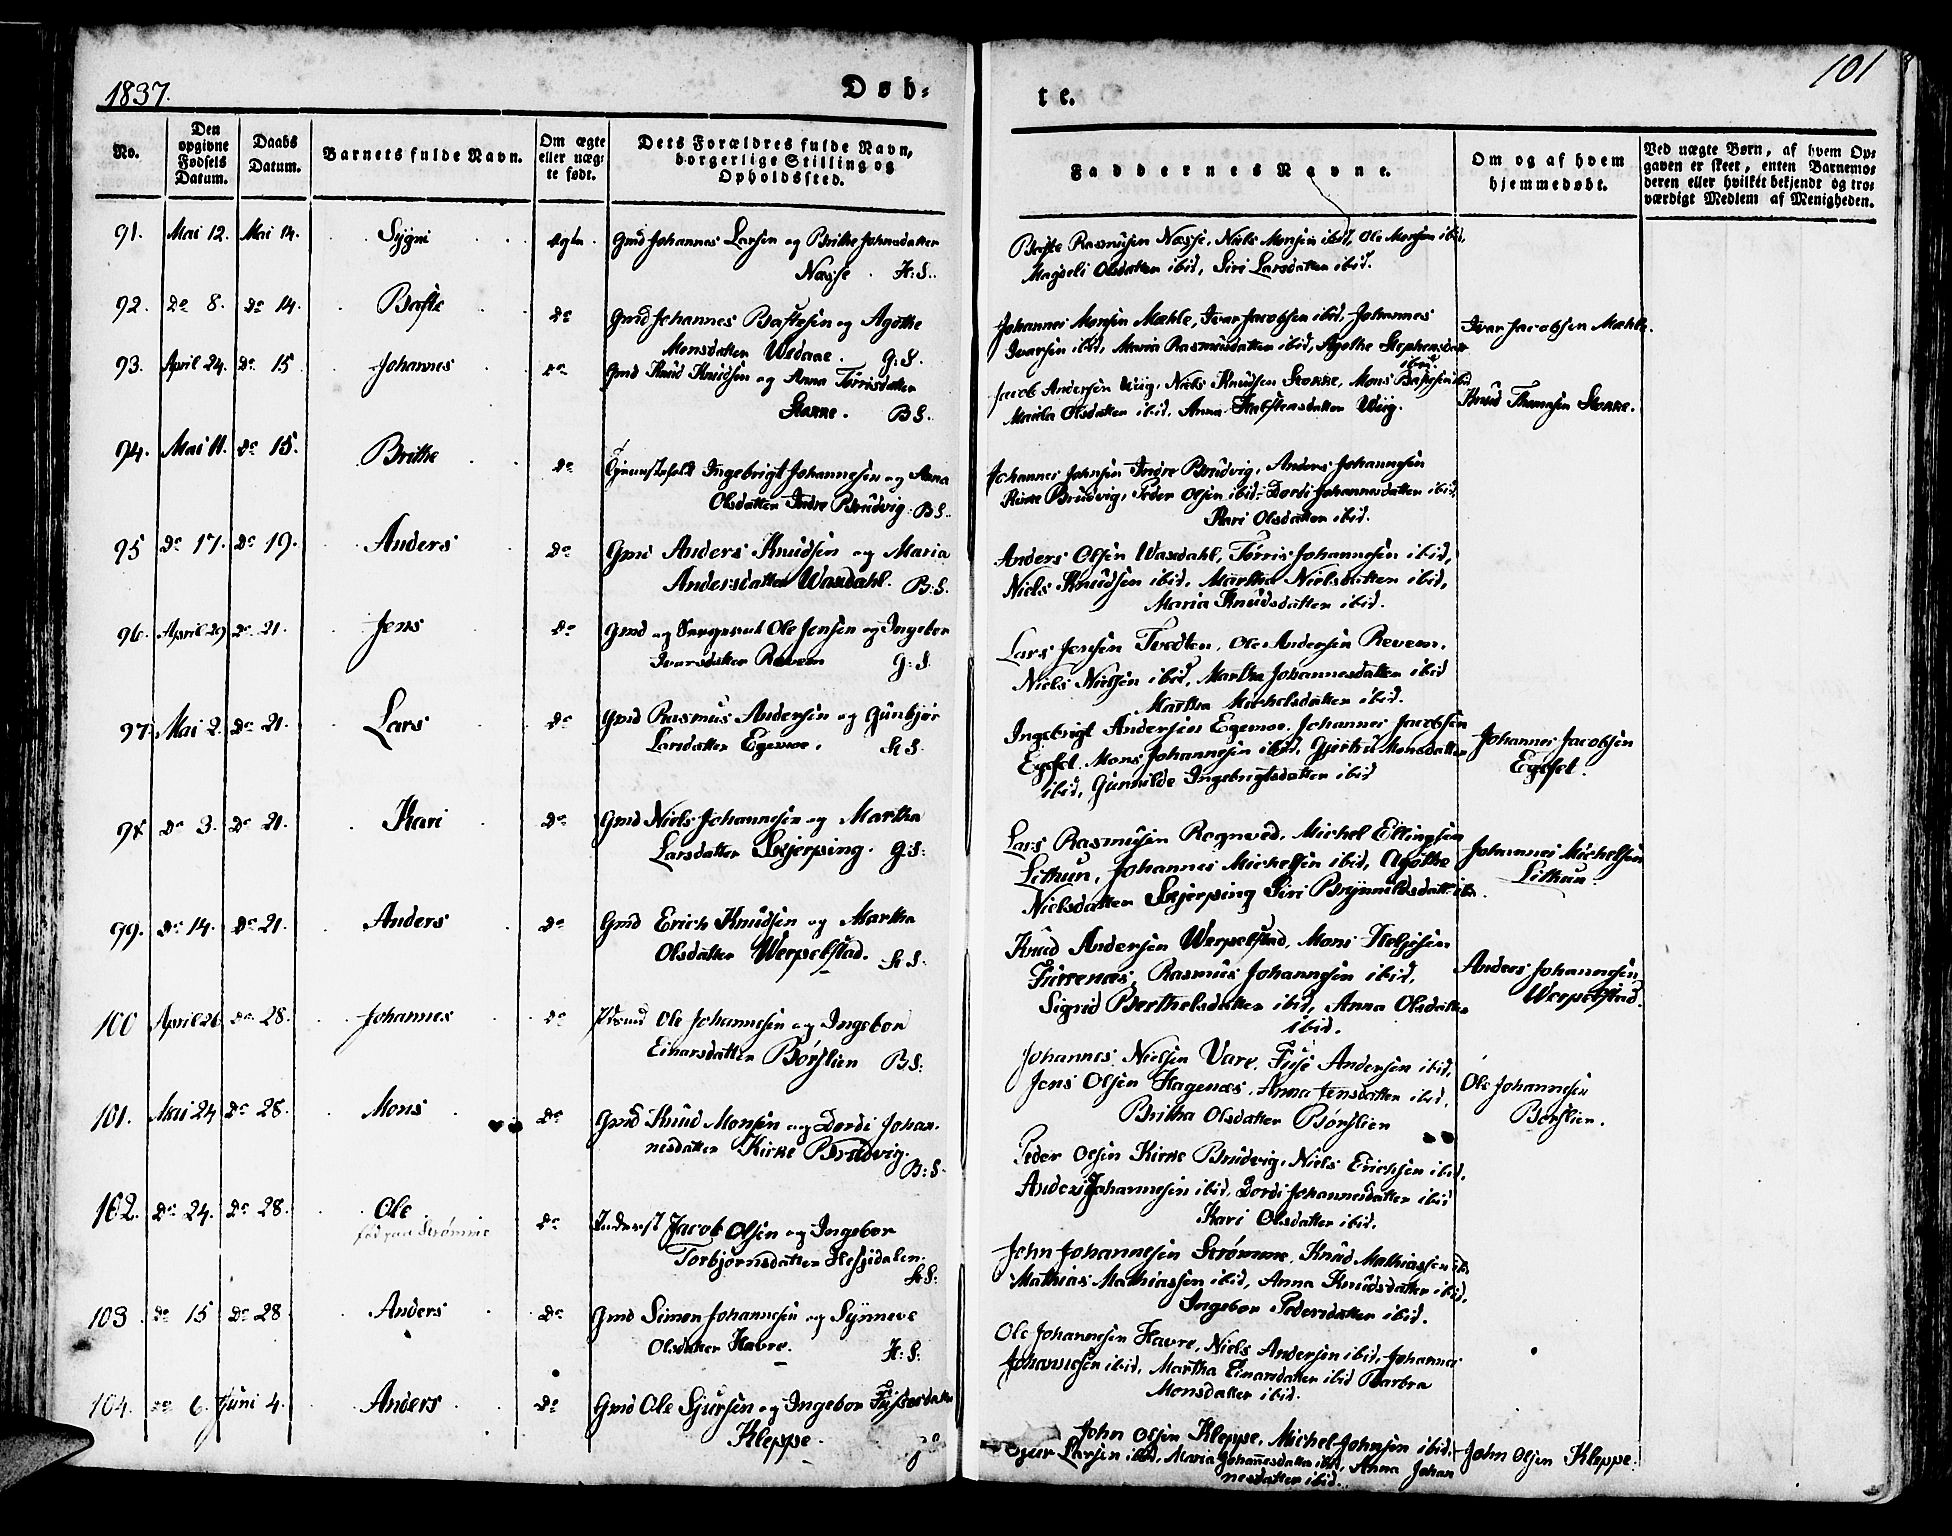 1837.
Døb-
te.
101
No.
Den opgivne Fødsels Datum.
Daabs Datum.
Barnets fulde Navn.
Om ægte eller uægte født.
Dets Forældres fulde Navn, borgerlige Stilling og Opholdssted.
Faddernes Navne.
Om og af hvem hjemmedøbt.
Ved uægte Børn, af hvem Opgaven er skeet, enten Barnemoderen eller hvilket bekjendt og troværdigt Medlem af Menigheden.
91. Mai 12. Mai 14. Sygni ægte. Gmd Johannes Larsen og Brithe Johnsdatter
Næsse. H:S.
Baste Rasmusen Næsse, Niels Monsen ibid, Ole Monsen ibid,
Magdeli Olsdatter ibid, Siri Larsdatter ibid.
92. do 8. do 14. Baste do Gmd Johannes Bastesen og Agothe
Monsdatter Wedaae. G:S.
Johannes Monsen Mæhle, Ivar Jacobsen ibid, Johannes
Ivarsen ibid, Maria Rasmusdatter ibid, Agothe Stephensdatter
ibid.
Ivar Jacobsen Mæhle.
93. April 24. do 15 Johannes do Gmd Knud Knudsen og Anna Tørrisdatter
Storre. B S.
Jacob Andersen Wiig, Niels Knudsen Storre, Mons Bastesen ibid
Marita Olsdatter ibid. Anna Wiig.
Knud Storre.
94. Mai 11. do 15. Brithe do Ingebrigt Johannesen og Anna
Olsdatter Indre Brudvig. B S.
Johannes Johnsen Indre Brudvig, Anders Johannesen
Brudvig, Peder Olsen ibid, Dordi Johannesdatter ibid,
Kari Olsdatter ibid.
95 do 17. do 19. Anders do Gmd Anders Knudsen og Maria
Andersdatter Waxdahl. B:S.
Anders Olsen Waxdahl, Tørris Johannesen ibid,
Niels Knudsen ibid, Martha Nielsdatter ibid,
Maria Knudsdatter ibid.
96. April 29 do 21. Jens do Gmd og Sergeant Ole Jensen og Ingebor
Ivarsdatter Revem G:S.
Lars Jensen Tvedten, Ole Andersen Revem,
Niels Nielsen ibid, Martha Johannesdatter ibid
Martha Michelsdatter ibid.
97. Mai 2. do 21. Lars do Gmd Rasmus Andersen og Gunbjør
Larsdatter Egemoe. H S.
Ingebrigt Andersen Egemoe, Johannes Jacobsen
Egset, Mons Johannesen ibid, Gjertrud Monsdatter
ibid, Gunnilde Ingebrigtsdatter ibid
Johannes Jacobsen
Egset.
98 do 3. do 21. Kari do Gmd Niels Johannesen og Martha
Larsdatter Skjerping. G:S:
Lars Rasmusen Rognved, Michel Ellingsen
Lithun, Johannes Michelsen ibid, Agothe
Nielsdatter Skjerping Siri Brynnildsdatt. ibid.
Johannes Michelsen
Lithun.
99. do 14. do 21. Anders do Gmd Erich Knudsen og Martha
Olsdatter Werpelstad. H S.
Knud Andersen Werpelstad, Mons Helgesen
Furrenæs, Rasmus Johannesen ibid,
Sigrid Berthelsdatter ibid, Anna Olsdatter
ibid.
Anders Johannesen
Werpelstad.
100 April 26 do 28. Johannes do Ole Johannesen og Ingebor
Einarsdatter Børslien B S:
Johannes Nielsen Vare, Fuse Andersen ibid,
Jens Olsen Hagenæs, Anna Jensdatter ibid,
Britha Olsdatter Børslien
Ole Johannesen
Børslien.
101. Mai 24 do 28. Mons do Gmd Knud Monsen og Dordi Johan-
nesdatter Kirke Brudvig. B:S.
Peder Olsen Kirke Brudvig, Niels Erichsen ibid,
Anders Johannesen ibid, Dordi Johannesdatter ibid
Kari Olsdatter ibid.
102. do 24. do 28. Ole do Inderst Jacob Olsen og Ingebor
fød paa Strømme
Torbjørnsdatter Hessjedalen.
H S:
John Johannesen Strømme, Knud Mathiassen ibid
Mathias Mathiassen ibid, Anna Knudsdatter ibid,
Ingebor Pedersdatter ibid.
103 do 15 do 28 Anders do Gmd Simon Johannesen og Synneve
Olsdatter Havre. H:S:
Ole Johannesen Havre, Niels Andersen ibid, Johannes
Johannesen ibid, Martha Einarsdatter ibid Barbra
Monsdatter ibid.
104. do 6. Juni 4. Anders do Gmd Ole Sjursen og Ingebor
Kleppe.
John Olsen Kleppe, Michel Johnsen ibid,
Sjur Larsen ibid, Maria Johannesdatter ibid, Anna Johan
nesdatter ibid.
John Olsen Kleppe.